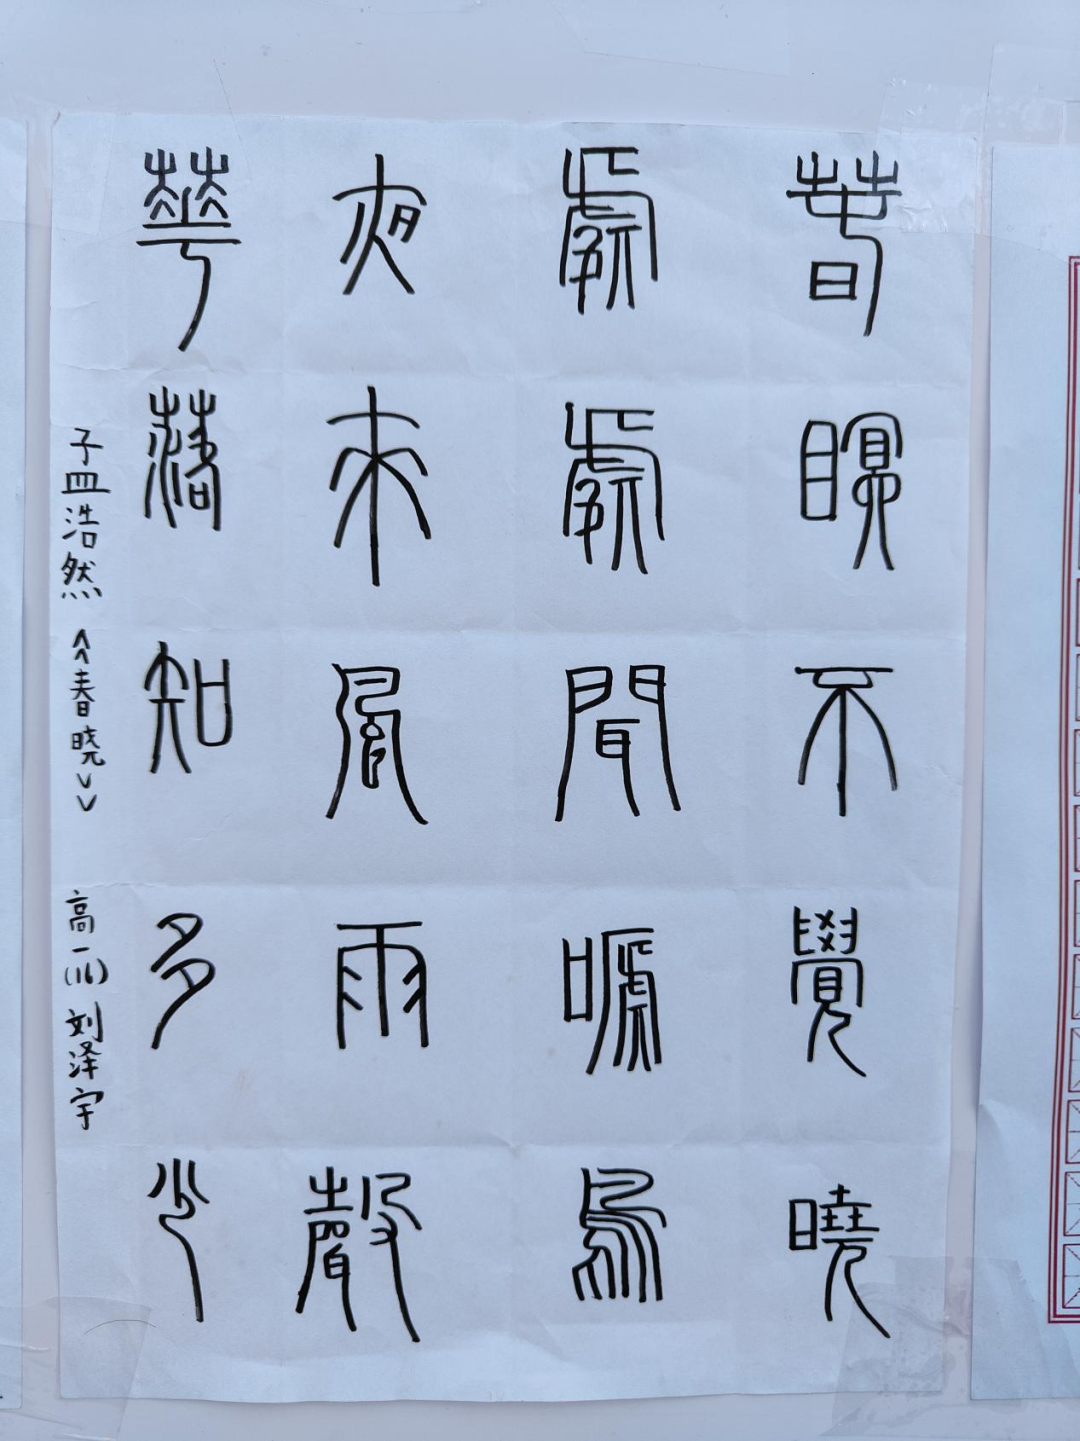 春瞑不覺曉
處處聞嗁鳥
夜來風雨聲
華落知多少
孟浩然《春晓》 高一(八) 刘泽宇